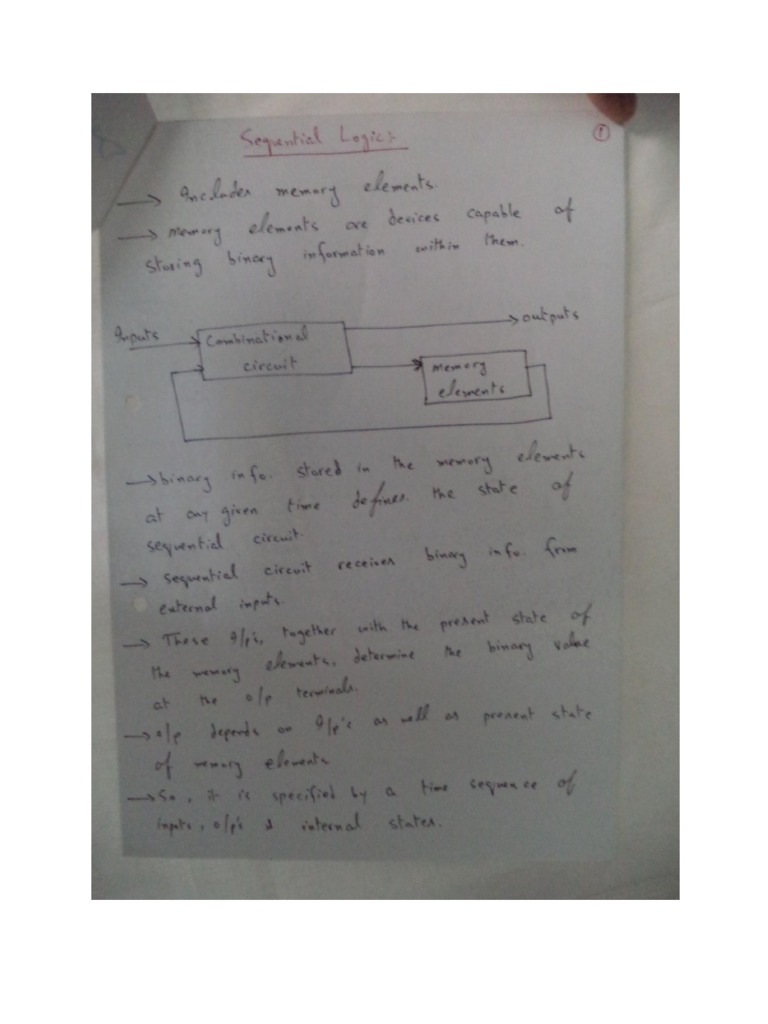 Sequential Logic:-
1
→ Includes memory elements.
→ memory elements are devices capable of
storing binary information within them.
Inputs
outputs
Combinational
circuit
memory
elements
→ binary info. stored in the memory elements
at any given time defines the state of
sequential circuit.
→ sequential circuit receives binary info. from
external inputs.
→ These I/p's, together with the present state of
the memory elements, determine the binary value
at the o/p terminals.
→ o/p depends on I/p's as well as present state
of memory elements
→ So, it is specified by a time sequence of
inputs, o/p's & internal states.